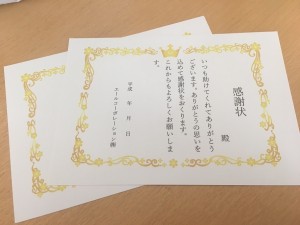 感謝状
殿
いつも助けてくれてありがとう
ございます。ありがとうの思いを
込めて感謝状をおくります。
これからもよろしくお願いしま
す。
平成 年 月 日
エーユーコーポレーション㈱